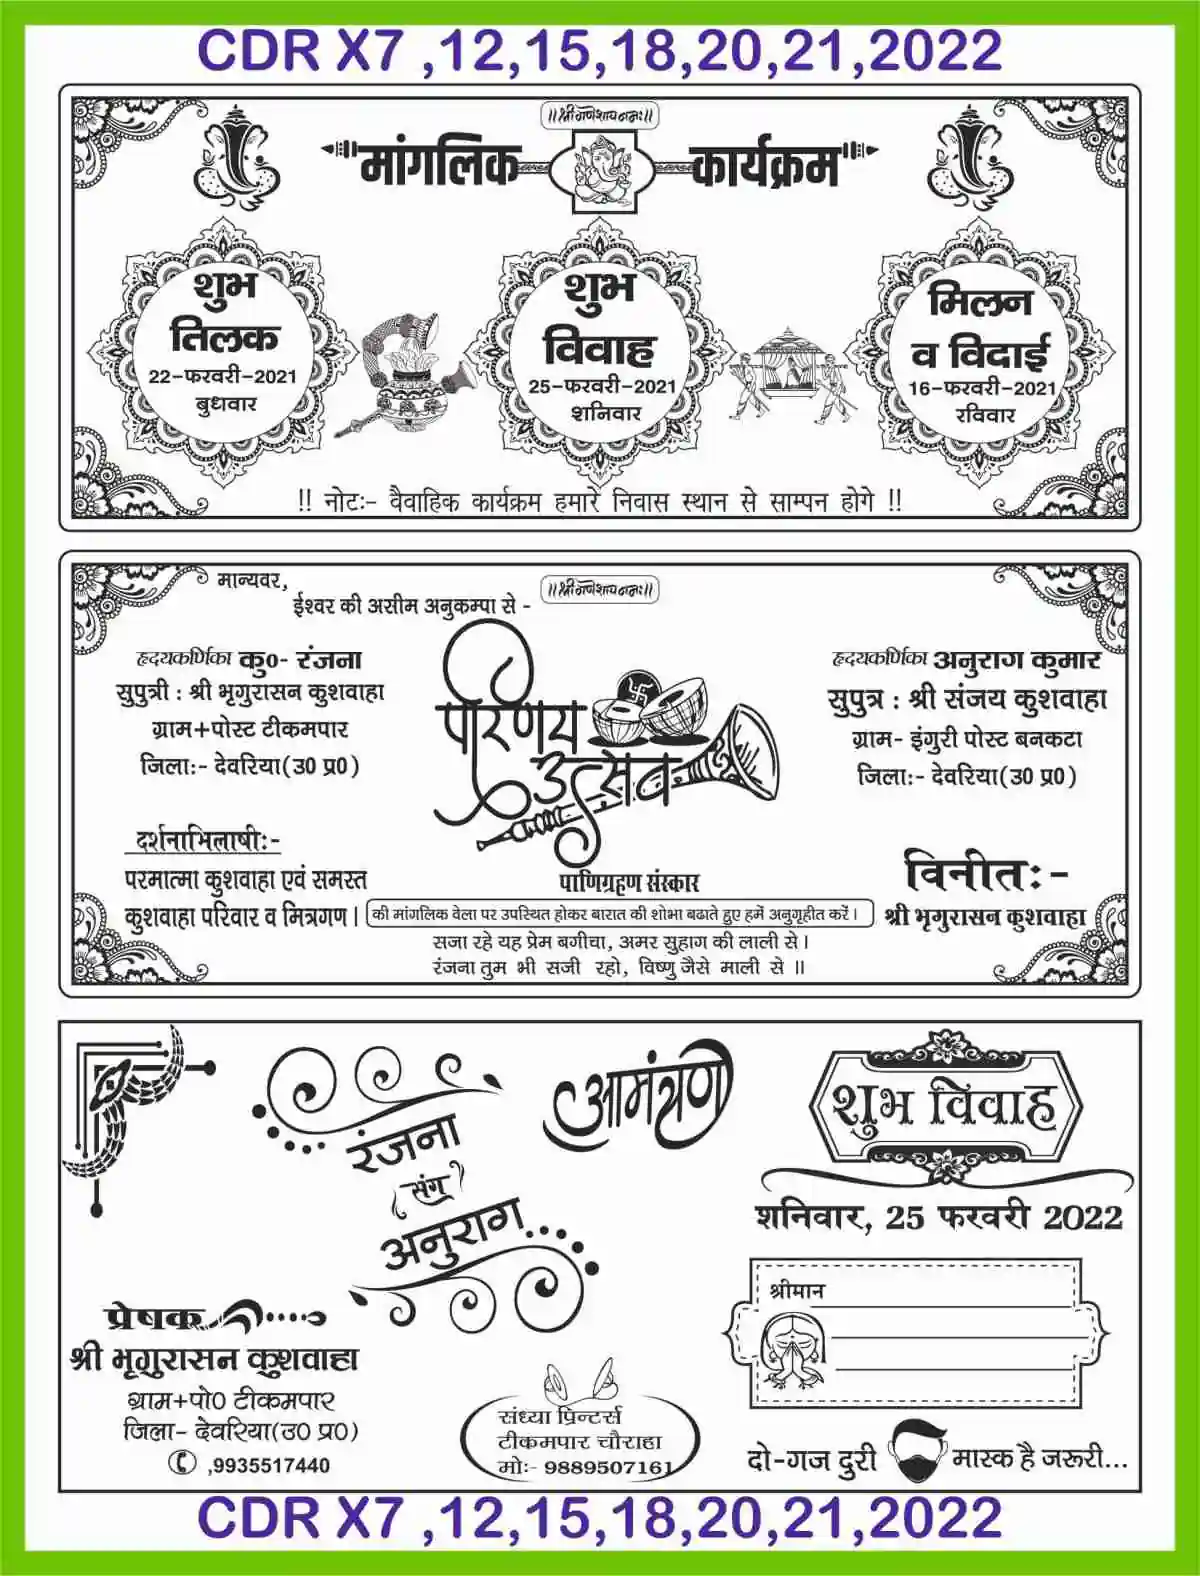 CDR X7 ,12,15,18,20,21,2022
॥श्री गणेशाय नमः॥
मांगलिक कार्यक्रम
शुभ
तिलक
22-फरवरी-2021
बुधवार
शुभ
विवाह
25-फरवरी-2021
शनिवार
मिलन
व विदाई
16-फरवरी-2021
रविवार
!! नोटः- वैवाहिक कार्यक्रम हमारे निवास स्थान से साम्पन होगे !!
मान्यवर,
॥श्री गणेशाय नमः॥
ईश्वर की असीम अनुकम्पा से -
हृदयकर्णिका कु0- रंजना
सुपुत्री : श्री भृगुरासन कुशवाहा
ग्राम+पोस्ट टीकमपार
जिलाः- देवरिया(उ0 प्र0)
परिणय
उत्सव
हृदयकर्णिका अनुराग कुमार
सुपुत्र : श्री संजय कुशवाहा
ग्राम- इंगुरी पोस्ट बनकटा
जिलाः- देवरिया(उ0 प्र0)
दर्शनाभिलाषीः-
परमात्मा कुशवाहा एवं समस्त
कुशवाहा परिवार व मित्रगण।
पाणिग्रहण संस्कार
की मांगलिक वेला पर उपस्थित होकर बारात की शोभा बढाते हुए हमें अनुगृहीत करें।
सजा रहे यह प्रेम बगीचा, अमर सुहाग की लाली से।
रंजना तुम भी सजी रहो, विष्णु जैसे माली से ॥
विनीतः-
श्री भृगुरासन कुशवाहा
रंजना
संग
अनुराग
आमंत्रण
शुभ विवाह
शनिवार, 25 फरवरी 2022
श्रीमान
प्रेषक
श्री भृगुरासन कुशवाहा
ग्राम+पो0 टीकमपार
जिला- देवरिया(उ0 प्र0)
,9935517440
संध्या प्रिन्टर्स
टीकमपार चौराहा
मोः- 9889507161
दो-गज दुरी मास्क है जरूरी...
CDR X7 ,12,15,18,20,21,2022